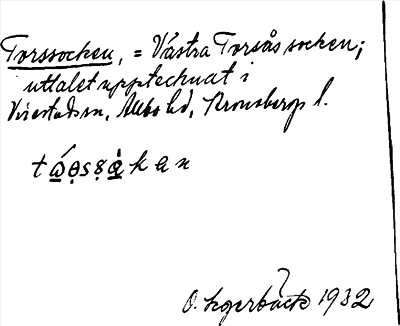 Torssocken, = Västra Torsås socken;
uttalet upptecknat i
Virestads sn, Allbo hd, Kronobergs l.
tǻǫsså̱kan
O. Lagerbäck 1932